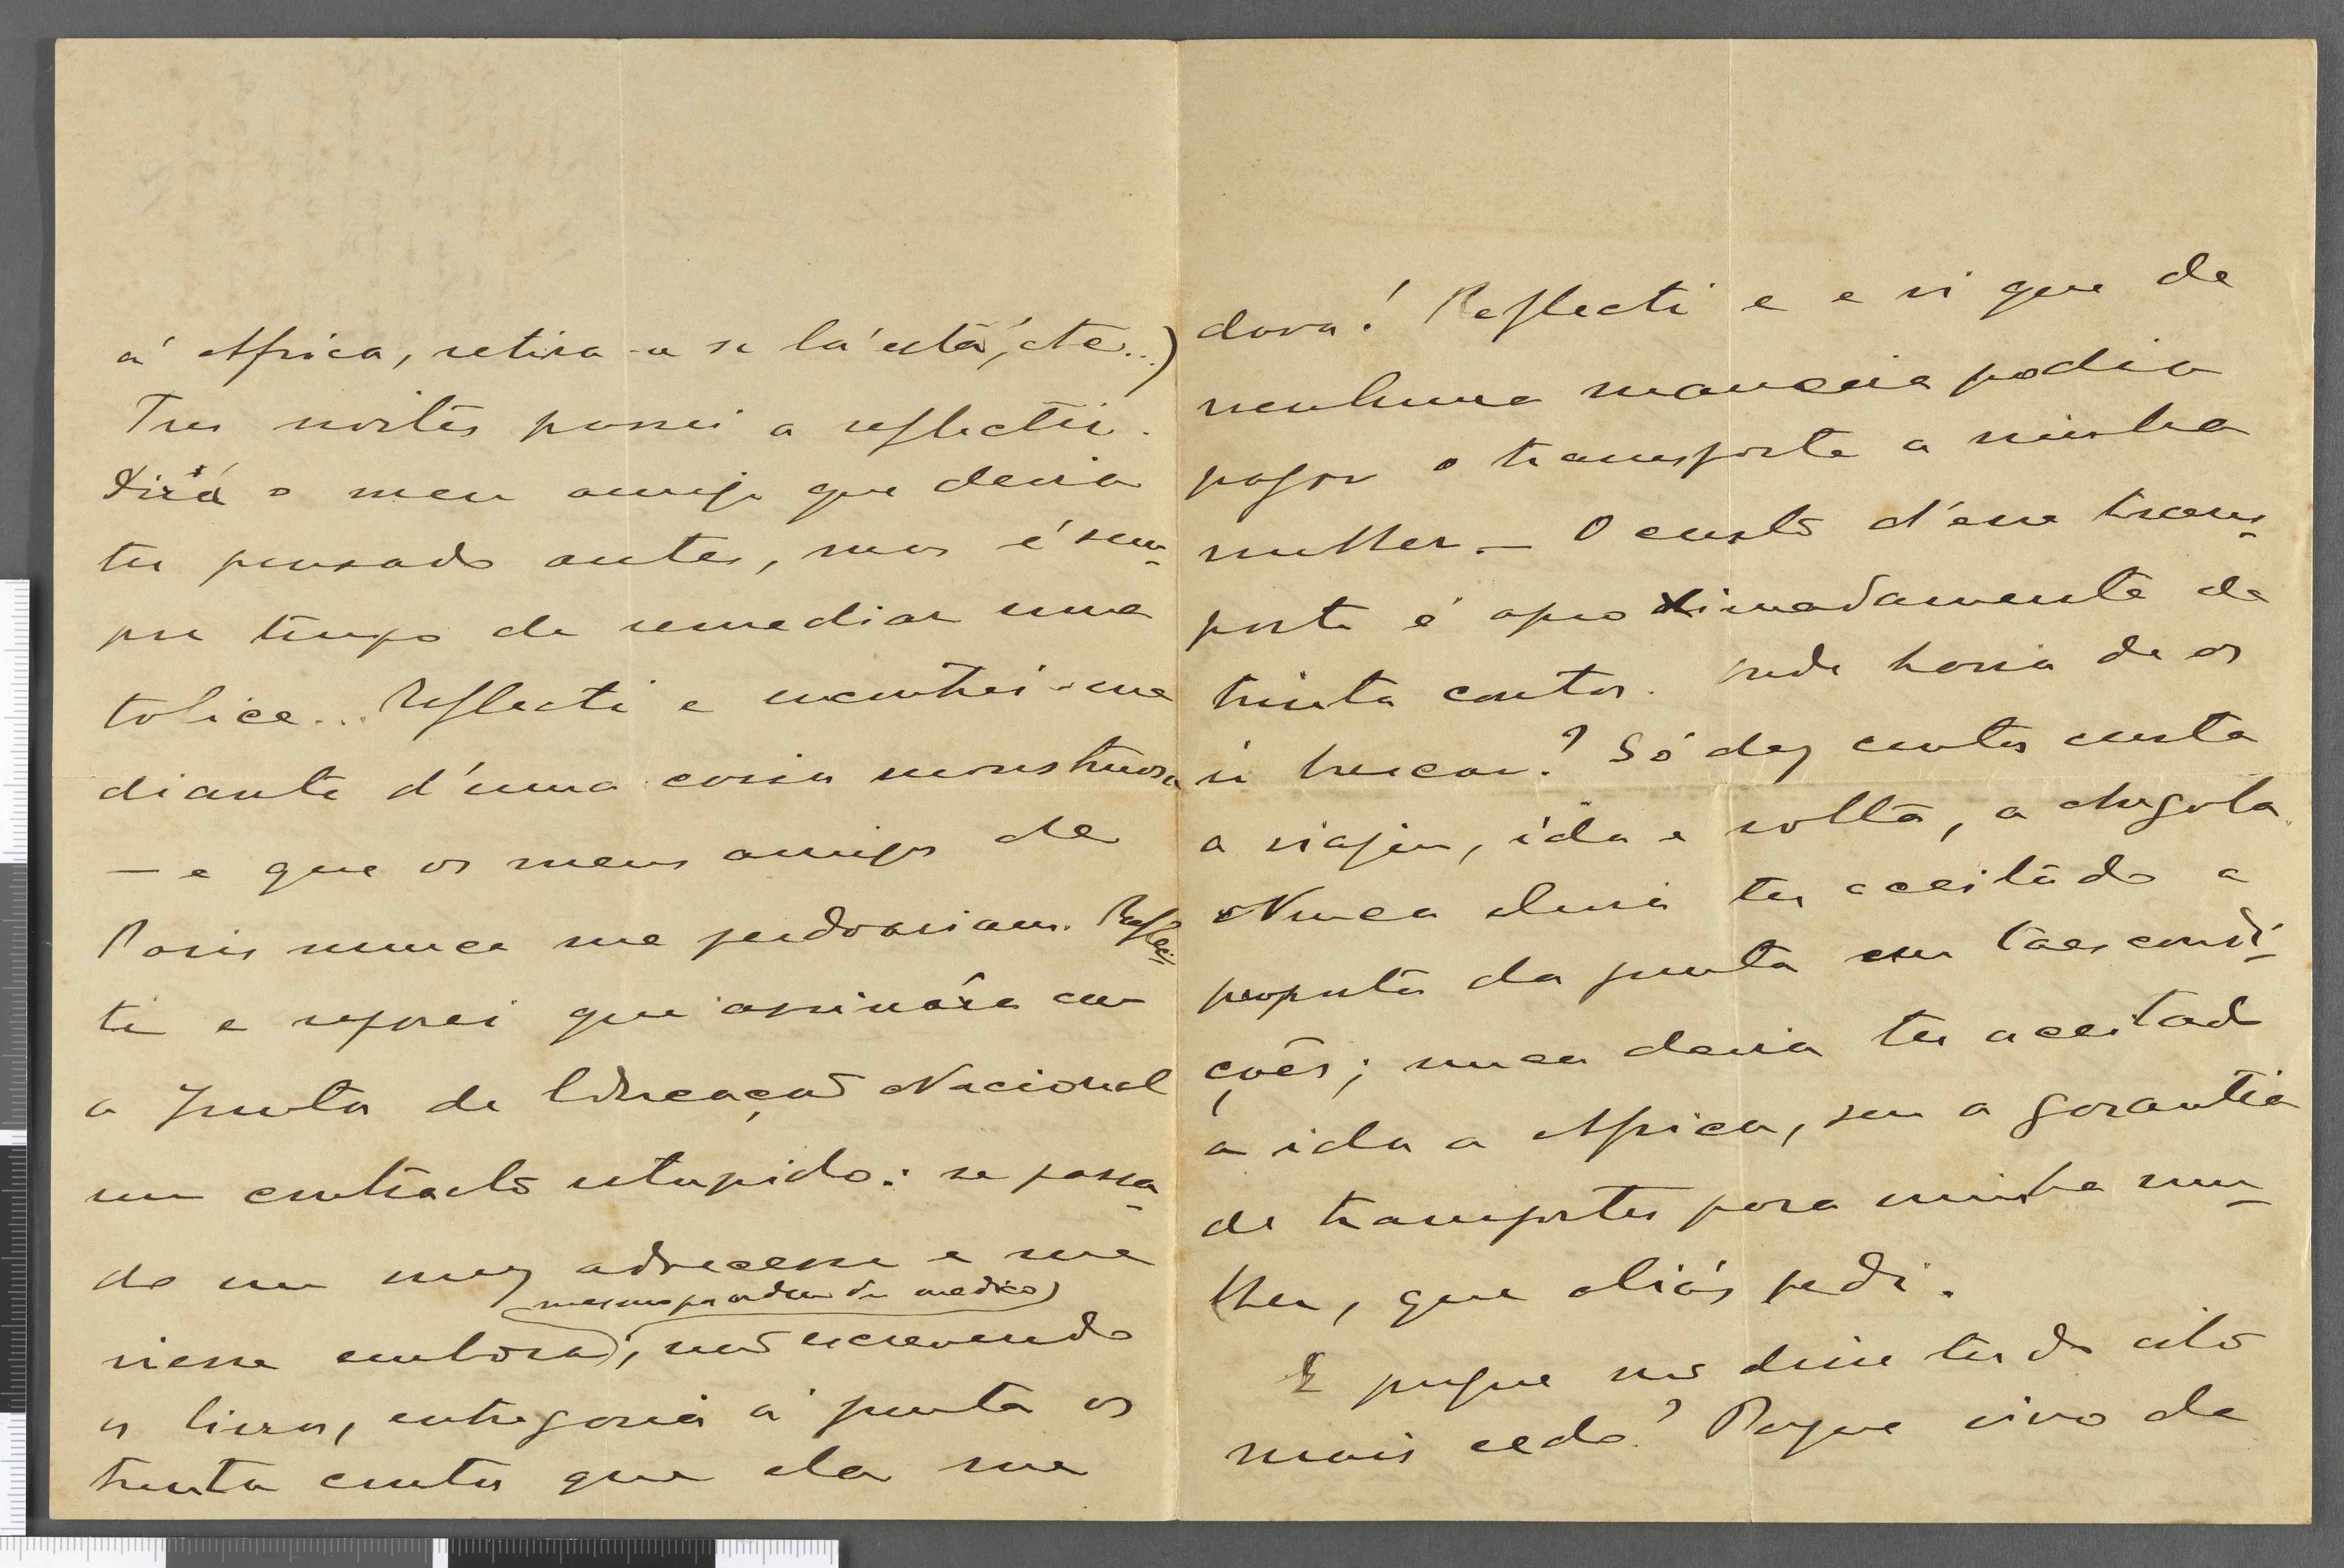 á Africa, retira-se se lá está, etc...)
Tres noites passei a reflectir.
Dirá o meu amigo que devia
ter pensado antes, mas é sem-
pre tempo de remediar uma
tolice... Reflecti e encontrei-me
diante d'uma coisa monstruosa
— e que os meus amigos de
Paris nunca me perdoariam. Reflec-
ti e reparei que assinára com
a Junta de Educação Nacional
um contracto estupido: se passa-
do um mez adoecesse e me
(mesmo por ordem do medico)
viesse embora, não escrevendo
os livros, entregaria á Junta os
trinta contos que ela me
dava! Reflecti e e vi que de
nenhuma maneira podia
pagar o transporte a minha
mulher. — O custo d'esse trans-
porte é aproximadamente de
trinta contos. Onde havia de os
ir buscar? Só dez contos custa
a viajem, ida e volta, a Angola.
Nunca devia ter aceitado a
proposta da Junta em taes condi-
ções; nunca devia ter aceitado
a ida a Africa, sem a garantia
de transportes para minha mu-
lher, que aliás pedi.
E porque não disse tudo isto
mais cedo? Porque vivo de